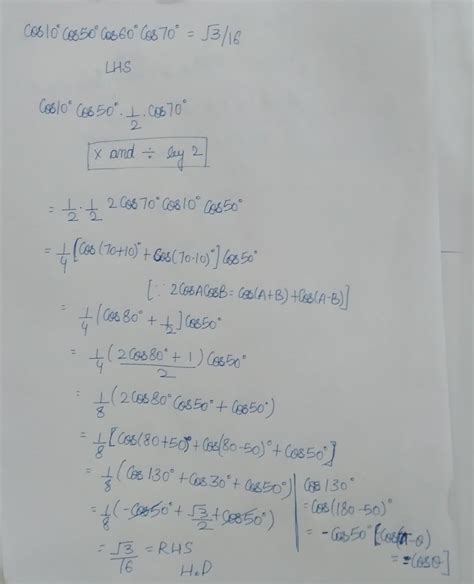 Cos10° Cos50° Cos60° Cos70° = √3/16
LHS
Cos10° Cos50° · 1/2 · Cos70°
× and ÷ by 2
= 1/2 · 1/2 2Cos70° Cos10° Cos50°
= 1/4 [Cos(70+10)° + Cos(70-10)°] Cos50°
[∵ 2CosACosB = Cos(A+B) + Cos(A-B)]
= 1/4 (Cos80° + 1/2] Cos50°
= 1/4 (2Cos80° + 1 / 2) Cos50°
= 1/8 (2Cos80° Cos50° + Cos50°)
= 1/8 [Cos(80+50)° + Cos(80-50)° + Cos50°]
= 1/8 (Cos130° + Cos30° + Cos50°)
= 1/8 (-Cos50° + √3/2 + Cos50°)
= √3/16 = RHS
H.P
Cos130°
= Cos(180-50)°
= -Cos50° [Cos(π-θ)
= -Cosθ]